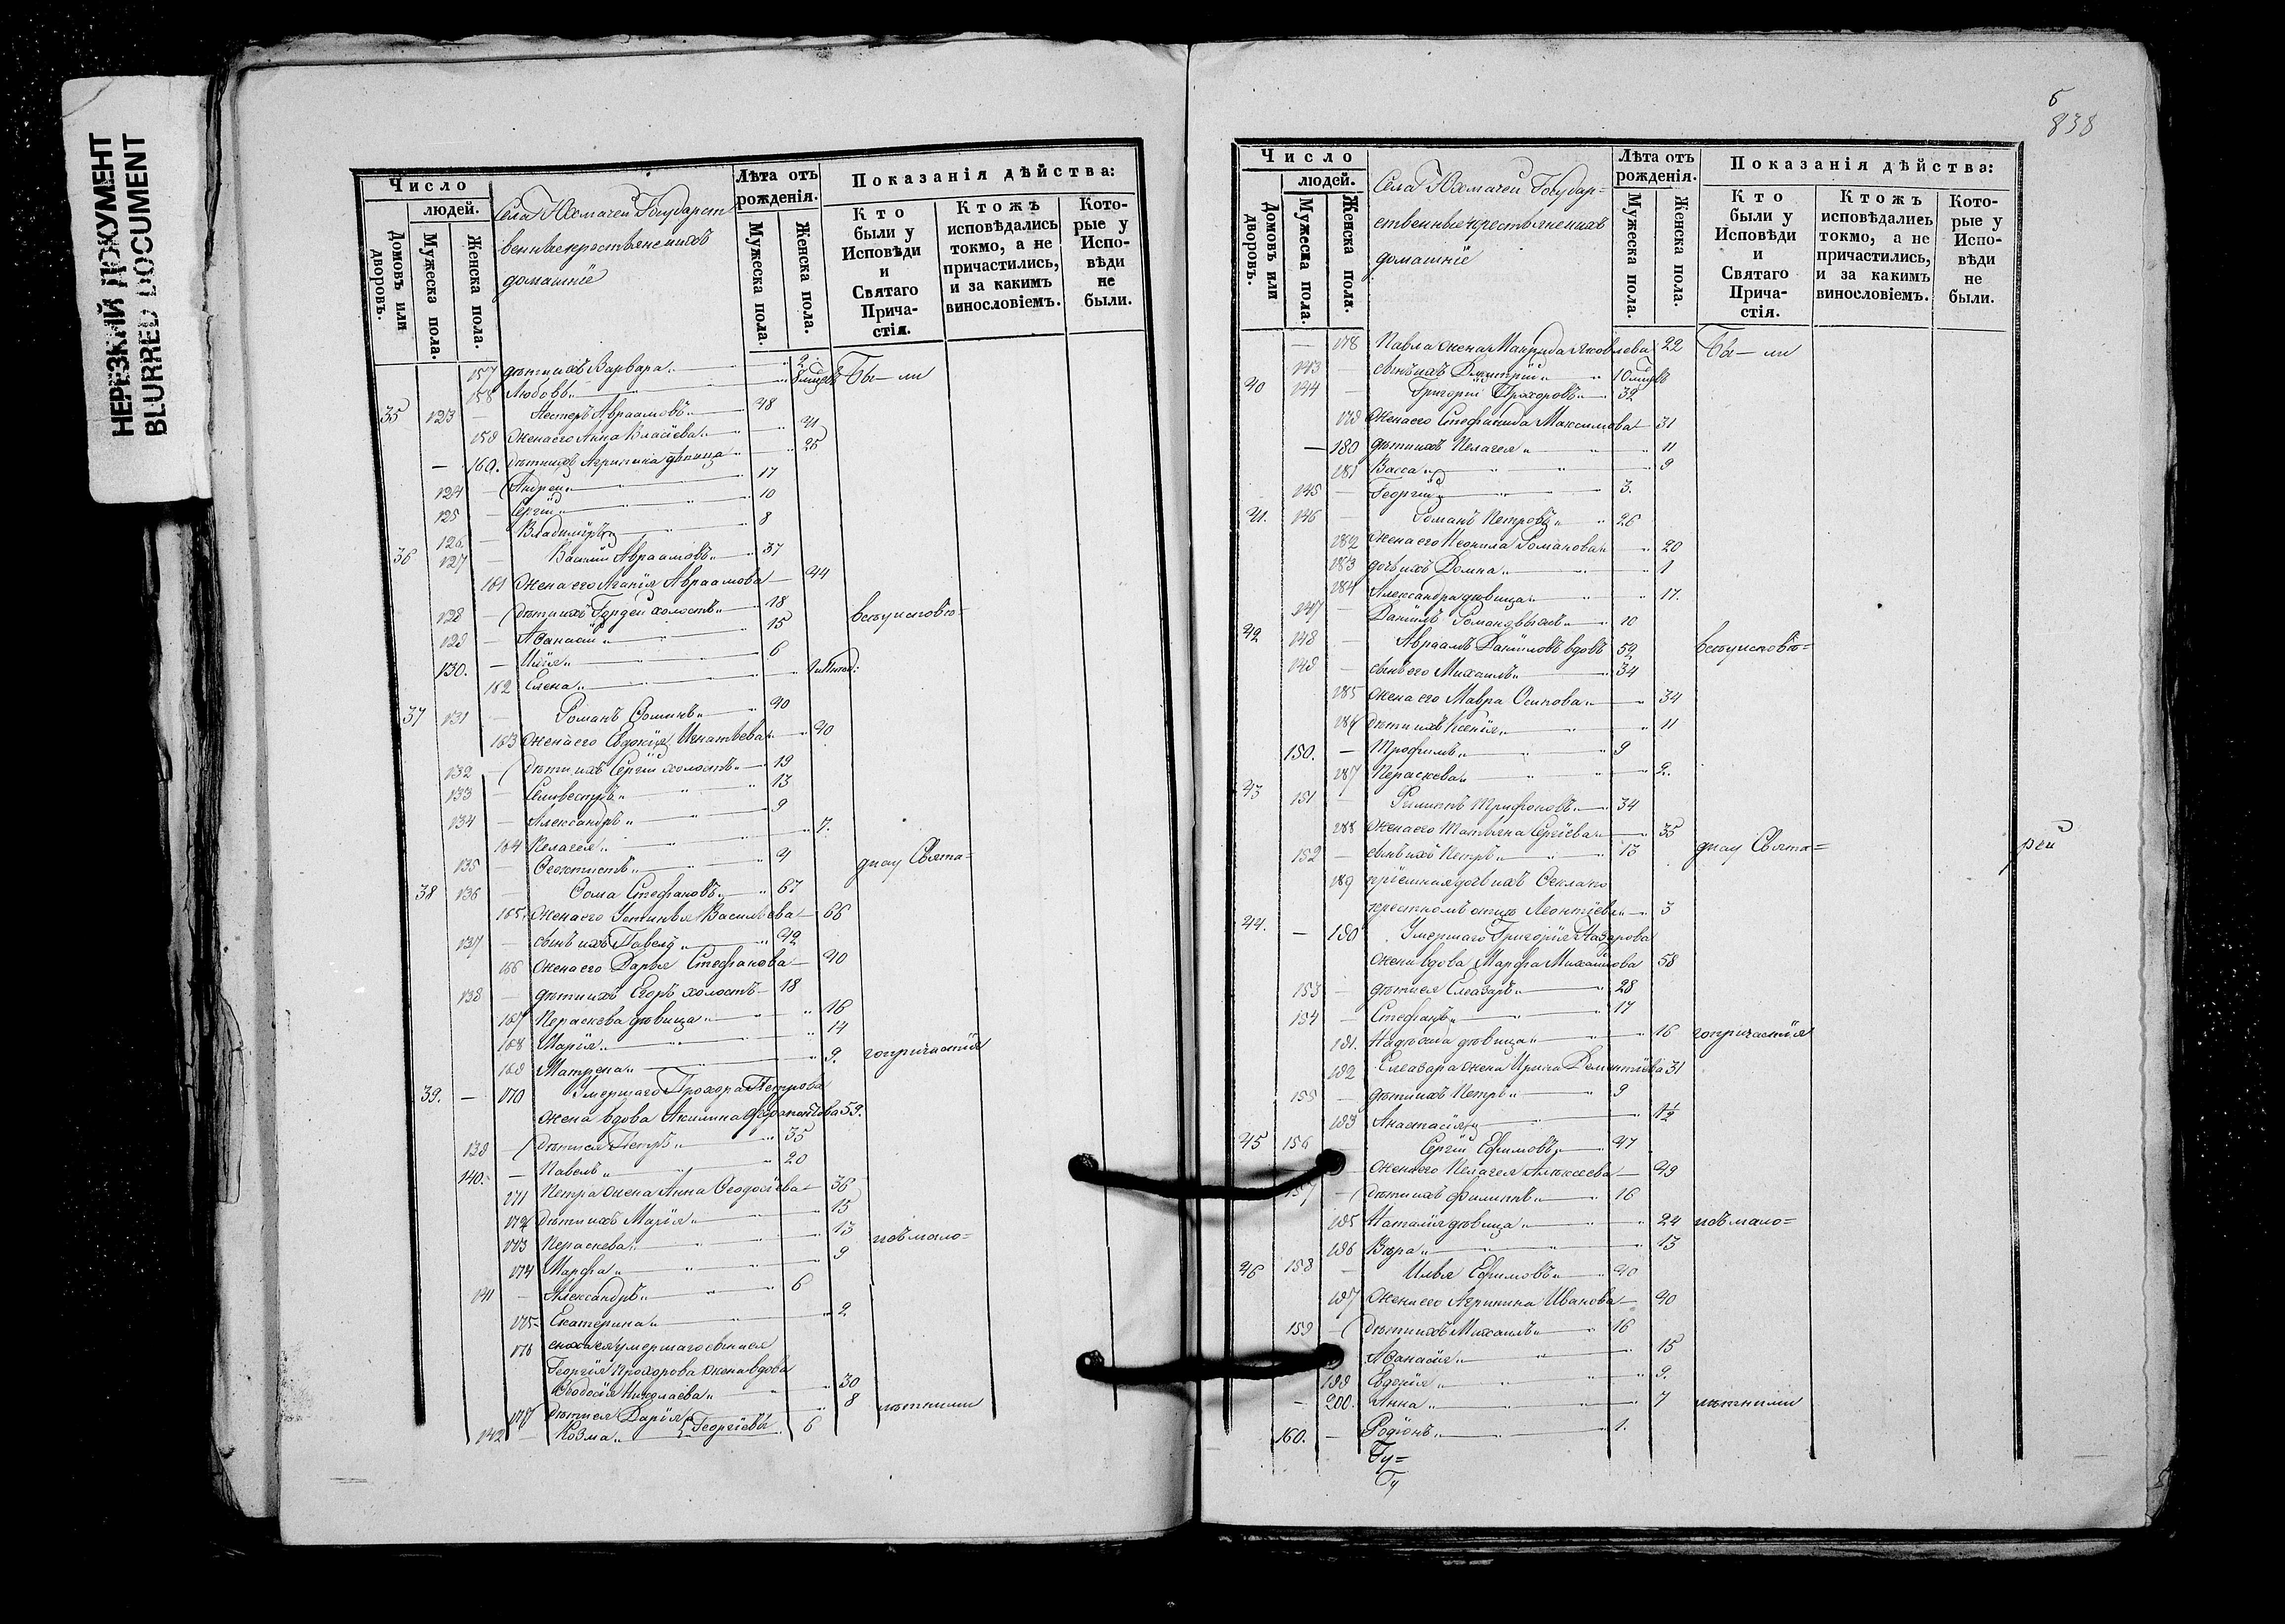 НЕРЕЗКИЙ ДОКУМЕНТ
BLURRED DOCUMENT
Число
людей.
Домовъ или дворовъ.
Мужеска пола.
Женска пола.
Села Юхмачей Государст
венные крестьяне и ихъ
домашнiе
Лѣта отъ рожденiя.
Мужеска пола.
Женска пола.
Показанiя дѣйства:
Кто были у Исповѣди и Святаго Прича- стiя.
Ктожъ исповѣдались токмо, а не причастились, и за какимъ винословiемъ.
Кото- рые у Испо- вѣди не были.
157 дѣти ихъ Варвара 2 Бы — ли
158 Любовь
35 123 Нестеръ Авраамовъ 48
159 Жена его Анна Власiева 41
160. дѣти ихъ Агрипина дѣвица 25
124 Андрей 17
125 Сергiй 10
126 Владимiръ 8
36 127 Василiй Авраамовъ 37
161 Жена его Агапiя Авраамова 44
128 Дѣти ихъ Гордей холостъ 18 всѣ у исповѣ=
129 Афанасiй 15
130. Илiя 6
162 Елена
37 131 Романъ Фоминъ 40
163 Жена его Евдокiя Игнатьева 40
132 Дѣти ихъ Сергiй холостъ 19
133 Селивестръ 13
134 Александръ 9
164 Пелагея 7.
135 Феоктистъ 4 ди и у Свята=
38 136 Фома Стефановъ 67
165. Жена его Устинья Васильева 66
137 сынъ ихъ Павелъ 42
166 Жена его Дарья Стефанова 40
138 дѣти ихъ Егоръ холостъ 18
167 Параскева дѣвица 16
168 Марiя 14
169 Матрена 9. го причастiя
39. — 170 Умершаго Прохора Петрова
жена вдова Акилина 59.
139 Дѣти ея Петръ 35
140. Павелъ 20
171 Петра жена Анна Феодосiева 36
172 Дѣти ихъ Марiя 15
173 Параскева 13 и съ мало=
174 Марфа 9
141 Александръ 6
175 Екатерина 2
176 сноха ея умершаго сына ея
Георгiя Прохорова жена вдова
Феодосiя Николаева 30
177 дѣти ея Дарiя 8 лѣтними
142 Козма Георгiевы 6
5
838
Число
людей.
Домовъ или дворовъ.
Мужеска пола.
Женска пола.
Села Юхмачей Государ=
ственные крестьяне и ихъ
домашнiе
Лѣта отъ рожденiя.
Мужеска пола.
Женска пола.
Показанiя дѣйства:
Кто были у Исповѣди и Святаго Прича- стiя.
Ктожъ исповѣдались токмо, а не причастились, и за какимъ винословiемъ.
Кото- рые у Испо- вѣди не были.
— 178 Павла жена Макрида Яковлева 22 Бы — ли
143 сынъ ихъ Димитрiй
40 144 Григорiй Прохоровъ 32
179 Жена его Стефанида Максимова 31
— 180 дѣти ихъ Пелагея 11
181 Васса 9
145 Георгiй 3.
41. 146 Романъ Петровъ 26
182 Жена его Неонила Романова 20
183 дочь ихъ Домна 1
184 Александра дѣвица 17.
147 Данiилъ 10
42 148 Авраамъ Данiиловъ вдовъ 59 всѣ у исповѣ=
149 сынъ его Михаилъ 34
185 жена его Мавра Осипова 34
186 Дѣти ихъ Ксенiя 11
150. — Трофимъ 9
187 Параскева 2.
43 151 Филиппъ Трифоновъ 34
188 Жена его Татьяна Сергiева 35
152 сынъ ихъ Петръ 13 ди и у Свята= рей
189 прiемная дочь ихъ Фекла по
крестномъ отцѣ Леонтiева 3
44. — 190 Умершаго Григорiя Назарова
жена вдова Марфа Михайлова 58
153 дѣти ея Елеазаръ 28
154 Стефанъ 17
191. Надежда дѣвица 16 го причастiя
192 Елеазара жена Ирина Дементiева 31
155 дѣти ихъ Петръ 9
193 Анастасiя 1½
45 156 Сергiй Ефимовъ 47
Жена его Пелагея Алексеева 49
157 Дѣти ихъ Филиппъ 16
195 Наталiя дѣвица 24 и съ мало=
196 Вѣра 13
46 158 Илья Ефимовъ 40
197 Жена его Агрипина Иванова 40
159 Дѣти ихъ Михаилъ 16
Афанасiя 15
199 Евдокiя 9.
— 200. Анна 7 лѣтними
160. — Родiонъ 1.
Гу=
Гу